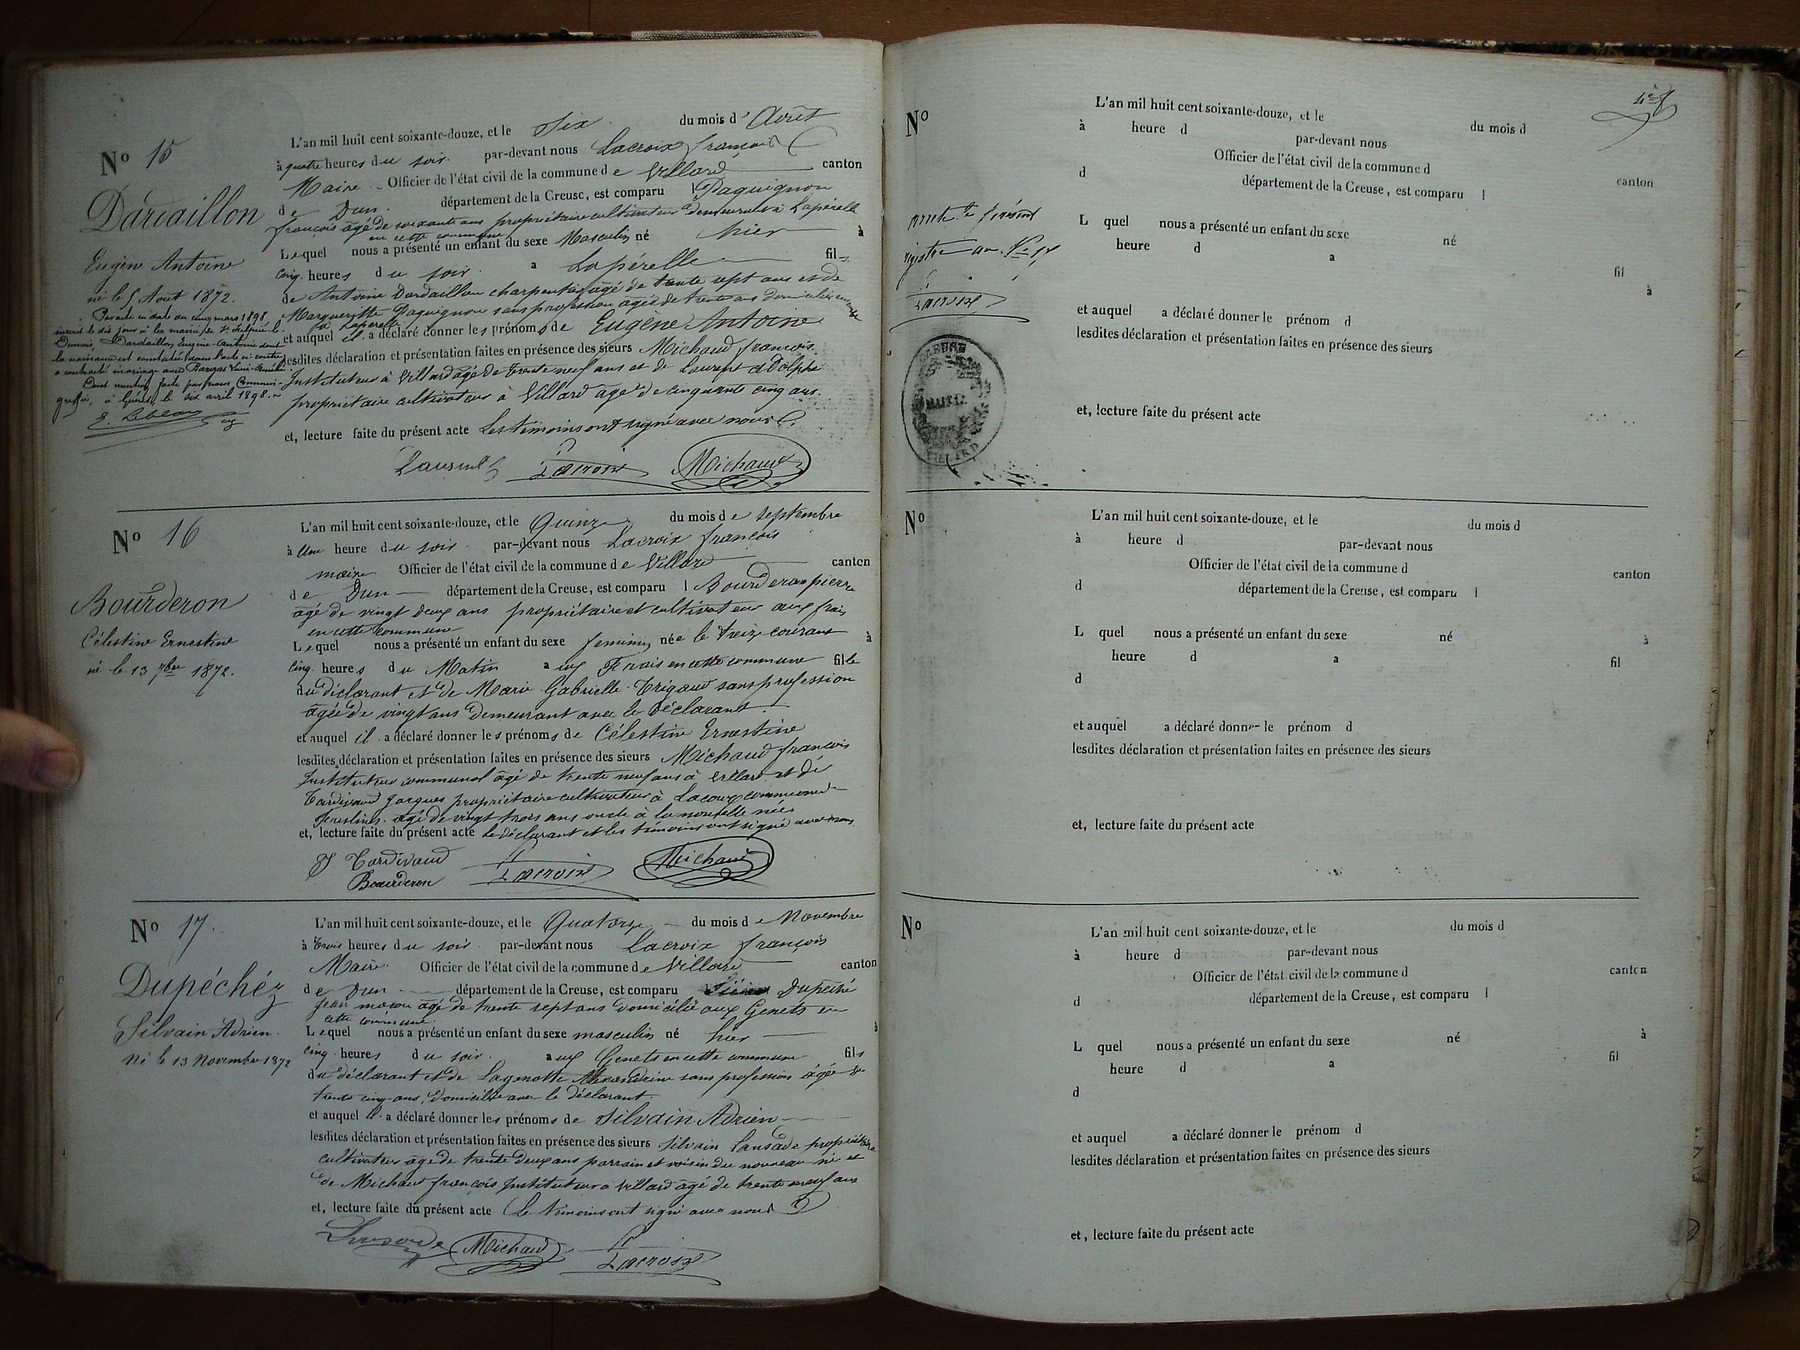 N° 15
Dardaillon
Eugène Antoine
né le 5 Aout 1872.
Par acte en date du cinq mars 1898
inscrit le dix jour à la mairie de St Sulpice le
Dunois, Dardaillon, Eugène-Antoine dont
la naissance est constatée dans l'acte ci-contre
a contracté mariage avec
Dont mention faite par nous, Commis-
greffier, à Guéret, le dix avril 1898.
L'an mil huit cent soixante-douze, et le Six du mois d'Août
à quatre heures du soir par-devant nous Lacroix françois
Maire Officier de l'état civil de la commune de Villard canton
de Dun département de la Creuse, est comparu Paquignon
françois âgé de soixante ans propriétaire cultivateur demeurant à Lapérelle
en cette commune
Lequel nous a présenté un enfant du sexe Masculin né hier à
cinq heures du soir a Lapérelle fils
de Antoine Dardaillon charpentier âgé de trente sept ans et de
Marguerite Paquignon sans profession agée de trente ans domiciliés
à Lapérelle
et auquel il a déclaré donner les prénoms de Eugène Antoine
lesdites déclaration et présentation faites en présence des sieurs Michaud françois
Instituteur à Villard âgé de trente neuf ans et de Laurent Adolphe
propriétaire cultivateur à Villard agé de cinquante cinq ans.
et, lecture faite du présent acte Les témoins ont signé avec nous
Laurent Lacroix Michaud
N° 16
Bourderon
Célestine Ernestine
né le 13 7bre 1872.
L'an mil huit cent soixante-douze, et le Quinze du mois de septembre
à Une heure du soir par-devant nous Lacroix françois
maire Officier de l'état civil de la commune de Villard canton
de Dun département de la Creuse, est comparu l Bourderon pierre
agé de vingt deux ans propriétaire et cultivateur aux frais
en cette commune
Lequel nous a présenté un enfant du sexe feminin née le treize courant à
cinq heures du Matin a aux frais en cette commune fille
du déclarant et de Marie Gabrielle Trigaud sans profession
agée de vingt ans demeurant avec le déclarant
et auquel il a déclaré donner les prénoms de Célestine Ernestine
lesdites déclaration et présentation faites en présence des sieurs Michaud françois
Instituteur communal âgé de trente neuf ans à Villard et de
Tardivaud Jacques propriétaire cultivateur à Lacoux commune de
agé de vingt trois ans oncle à la nouvelle née
et, lecture faite du présent acte le déclarant et les témoins ont signé avec nous
J Tardivaud Lacroix Michaud
Bourderon
N° 17.
Dupéchéz
Silvain Adrien
Né le 13 Novembre 1872
L'an mil huit cent soixante-douze, et le Quatorze du mois de Novembre
à Trois heures du soir par-devant nous Lacroix françois
Maire Officier de l'état civil de la commune de Villard canton
de Dun département de la Creuse, est comparu Dupéché
Jean maçon agé de trente sept ans domicilié aux Genets en
cette commune
Lequel nous a présenté un enfant du sexe masculin né hier à
cinq heures du soir aux Genets en cette commune fils
du déclarant et de Lagenotte Alexandrine sans profession âgée de
trente cinq ans, domiciliée avec le déclarant
et auquel il a déclaré donner les prénoms de Silvain Adrien
lesdites déclaration et présentation faites en présence des sieurs Silvain Lansade propriétaire
cultivateur agé de trente deux ans parrain et voisin du nouveau né et
de Michaud françois Instituteur à Villard agé de trente neuf ans
et, lecture faite du présent acte Les témoins ont signé avec nous
Lansade Michaud Lacroix
N°
L'an mil huit cent soixante-douze, et le du mois d
à heure d par-devant nous
Officier de l'état civil de la commune d canton
d département de la Creuse, est comparu l
L quel nous a présenté un enfant du sexe né à
heure d a fil
et auquel a déclaré donner le prénom d
lesdites déclaration et présentation faites en présence des sieurs
et, lecture faite du présent acte
présent
registre au N°
Lacroix
CREUSE
MAIRIE
VILLARD
N°
L'an mil huit cent soixante-douze, et le du mois d
à heure d par-devant nous
Officier de l'état civil de la commune d canton
d département de la Creuse, est comparu l
L quel nous a présenté un enfant du sexe né à
heure d a fil
d
et auquel a déclaré donner le prénom d
lesdites déclaration et présentation faites en présence des sieurs
et, lecture faite du présent acte
N°
L'an mil huit cent soixante-douze, et le du mois d
à heure d par-devant nous
Officier de l'état civil de la commune d canton
d département de la Creuse, est comparu l
L quel nous a présenté un enfant du sexe né à
heure d a fil
d
et auquel a déclaré donner le prénom d
lesdites déclaration et présentation faites en présence des sieurs
et, lecture faite du présent acte